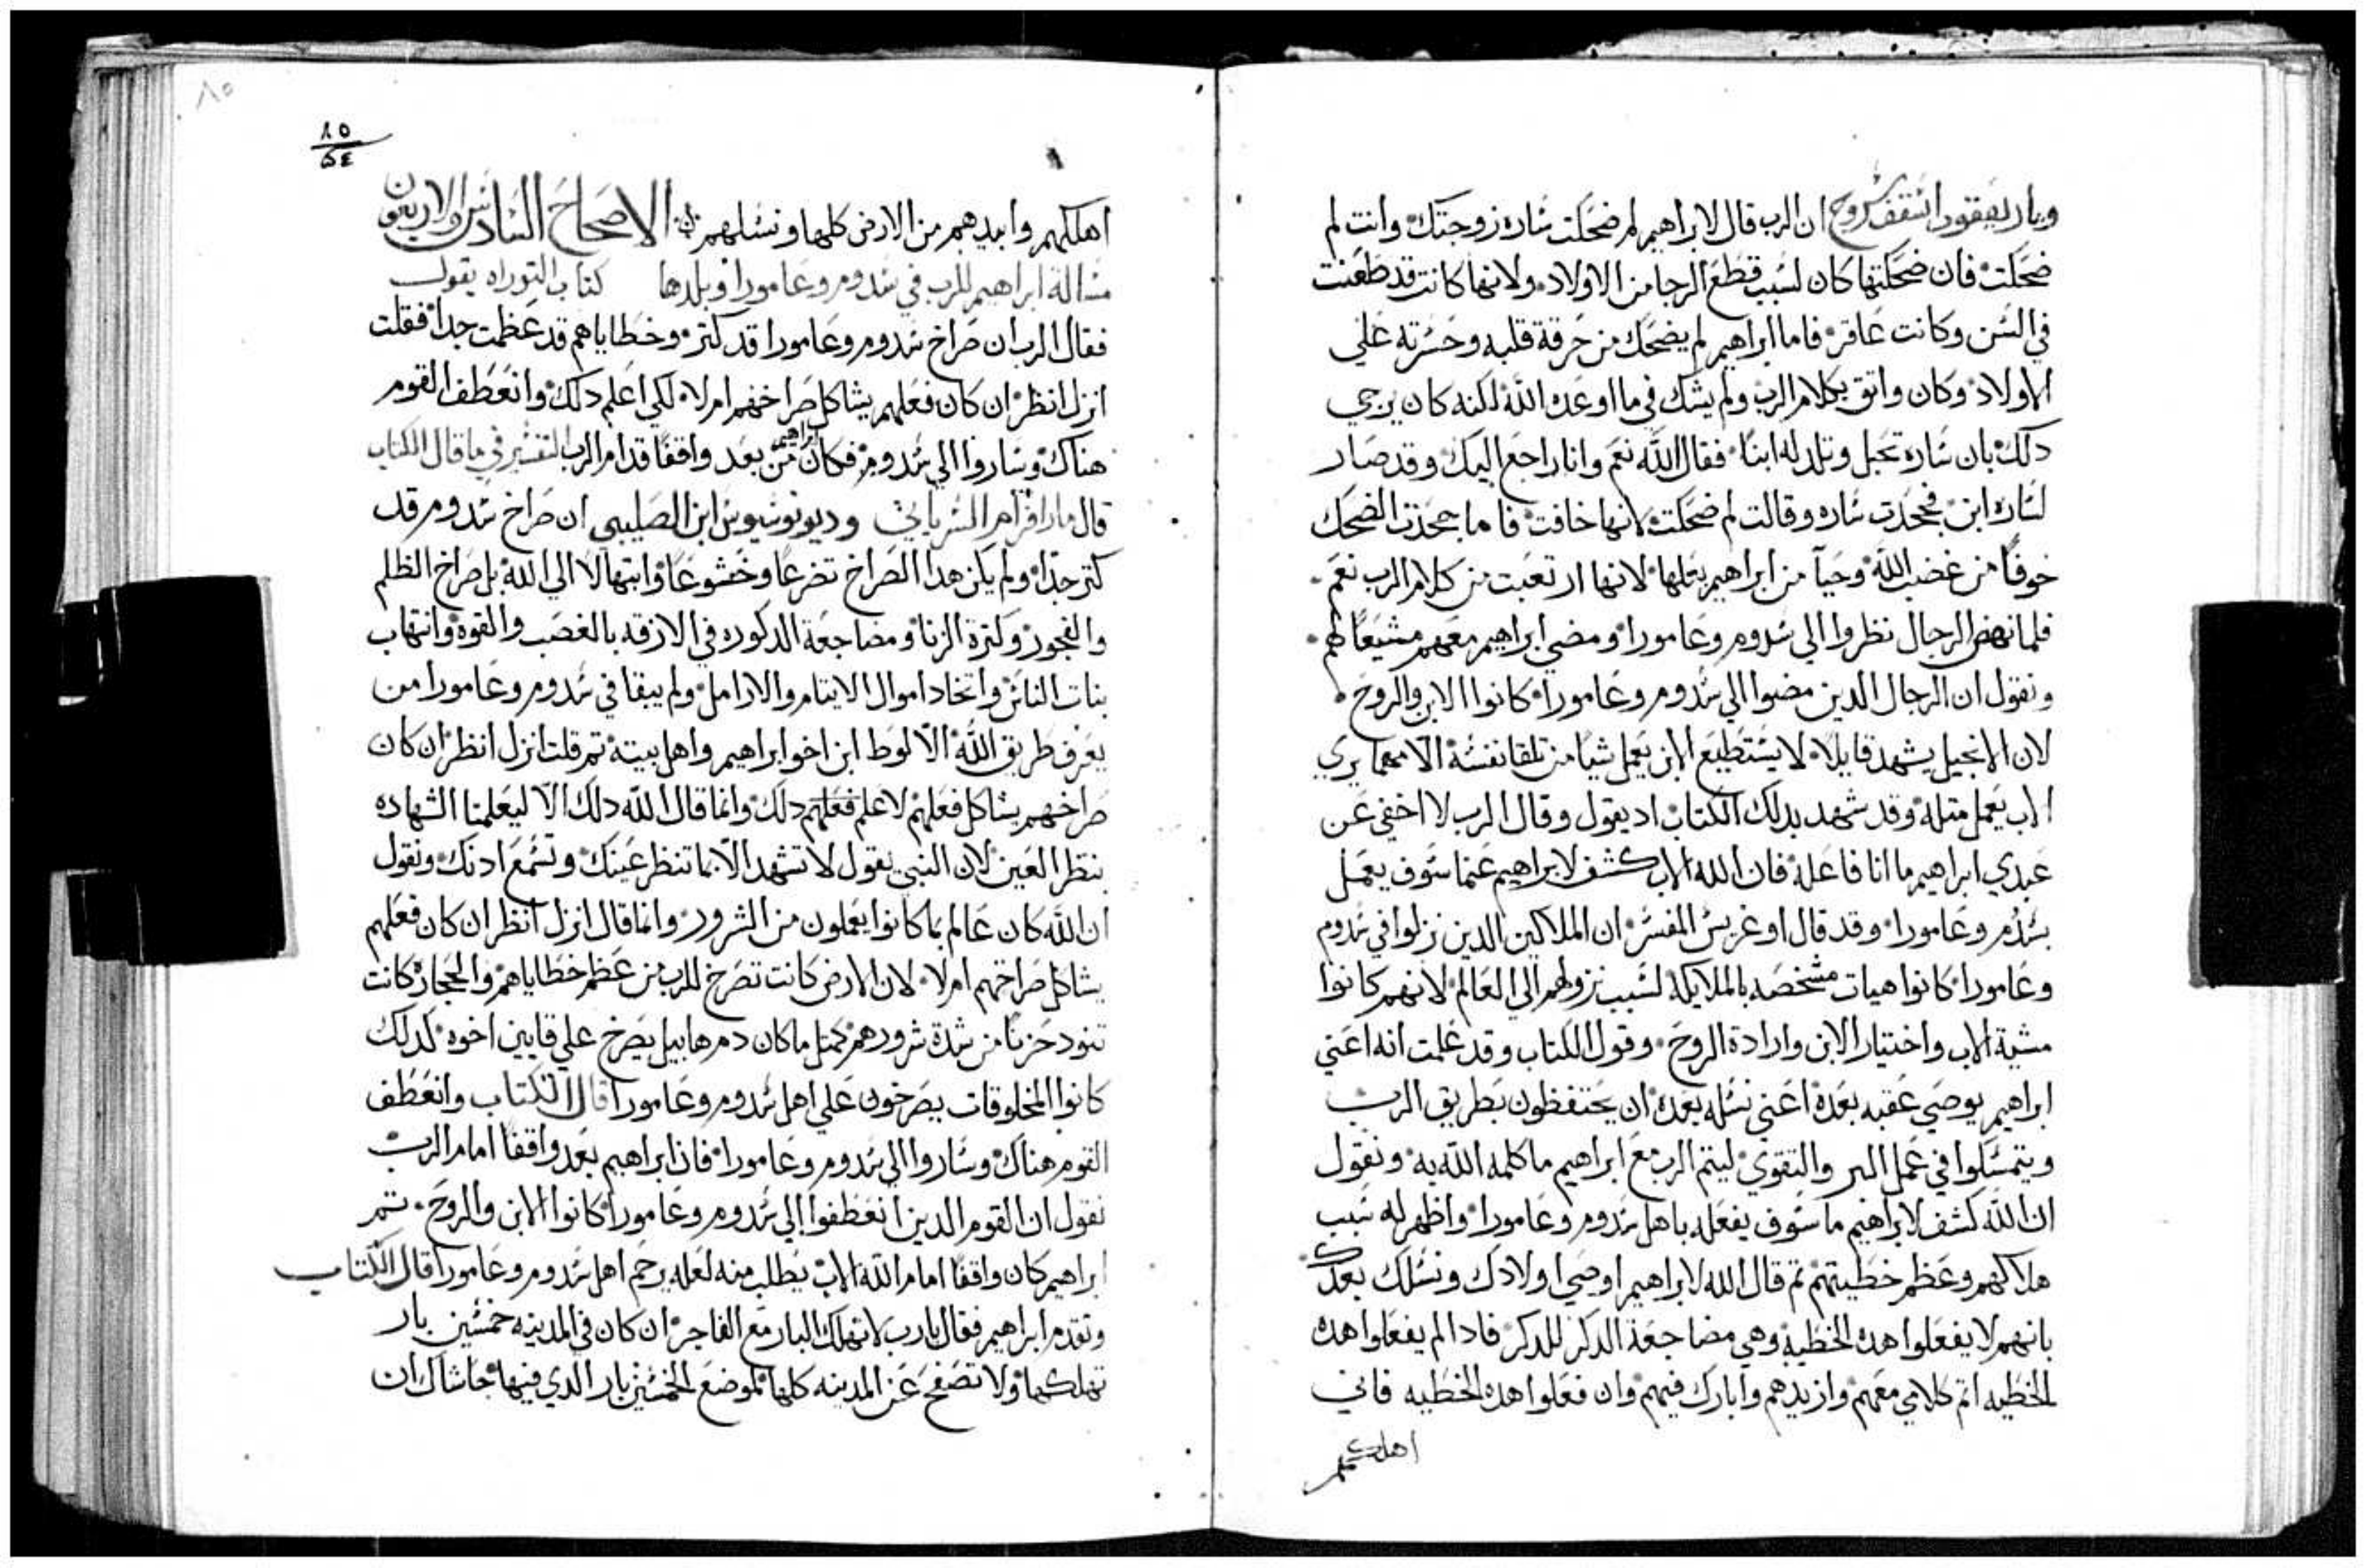 وبار يعقوب اسقف سروج ان الرب قال لابراهيم لم ضحكت ساره زوجتك وانت لم
ضحكت فان ضحكتها كان لسبب قطع الرجا من الاولاد ولانها كانت قد طعنت
في السن وكانت عاقر فاما ابراهيم لم يضحك من حرقة قلبه وحسرته علي
الاولاد وكان واتق بكلام الرب ولم يشك في ما اوعده الله لكنه كان يرجي
دلك بان ساره تحبل وتلد له ابنا فقال الله نعم وانا راجع اليك وقد صار
لساره ابن فجحدت ساره وقالت لم ضحكت لانها خافت فاما جحدت الضحك
خوفا من غضب الله وحيآ من ابراهيم بعلها لانها ارتعبت من كلام الرب نعم
فلما نهض الرجال نظروا الي سدوم وعامورا ومضي ابراهيم معهم مشيعا لهم
ونقول ان الرجال الدين مضوا الي سدوم وعامورا كانوا الابن والروح
لان الانجيل يشهد قايلا لا يستطيع الابن يعمل شيا من تلقا نفسه الا مهما يري
الاب يعمل متله وقد شهد بدلك الكتاب اد يقول وقال الرب لا اخفي عن
عبدي ابراهيم ما انا فاعله فان الله الاب كشف لابراهيم عنما سوف يعمل
بسدوم وعامورا وقد قال اوغريس المفسر ان الملاكين الدين نزلوا في سدوم
وعامورا كانوا هيات مشخصه بالملايكه لسبب نزولهم الي العالم لانهم كانوا
مشية الاب واختيار الابن وارادة الروح وقول الكتاب وقد علمت انه اعني
ابراهيم يوصي عقبه بعده اعني نسله بعده ان يحتفظون بطريق الرب
ويتمسكوا في عمل البر والتقوي ليتم الرب مع ابراهيم ما كلمه الله به ونقول
ان الله كشف لابراهيم ما سوف يفعله باهل سدوم وعامورا واظهر له سبب
هلاكهم وعظم خطيتهم تم قال الله لابراهيم اوصي اولادك ونسلك بعدك
بانهم لا يفعلوا هده الخطية وهي مضاجعة الدكر للدكر فادا لم يفعلوا هده
الخطيه اتم كلامي معهم وازيدهم وابارك فيهم وان فعلوا هده الخطيه فاني
اهلكهم
٨٥
٨٥
اهلكهم وابيدهم من الارض كلها ونسلهم الاصحاح السادس والاربعون
مسالة ابراهيم للرب في سدوم وعامورا وبلدها كتاب التوراه يقول
فقال الرب ان صراخ سدوم وعامورا قد كتر وخطاياهم قد عظمت جدا فقلت
انزل انظر ان كان فعلهم يشاكل صراخهم ام لا لكي اعلم دلك وانعطف القوم
هناك وساروا الي سدوم فكان ابراهيم من بعد واقفا قدام الرب التفسير في ما قال الكتاب
قال مار افرام السرياني وديونوسيوس ابن الصليبي ان صراخ سدوم قد
كتر جدا ولم يكن هدا الصراخ تضرعا وخشوعا وابتهالا الي الله بل صراخ الظلم
والفجور وكترة الزنا ومضاجعة الدكوره في الازقه بالغصب والقوة وانتهاب
بنات الناس واتخاد اموال الايتام والارامل ولم يبقا في سدوم وعامورا من
يعرف طريق الله الا لوط ابن اخو ابراهيم واهل بيته تم قلت انزل انظر ان كان
صراخهم يشاكل فعلهم لاعلم فعلهم دلك وانما قال الله دلك الا ليعلمنا الشهاده
بنظر العين لان النبي يقول لا تشهد الا بما تنظر عينك وتسمع ادنك ونقول
ان الله كان عالم بما كانوا يعملون من الشرور وانما قال انزل انظر ان كان فعلهم
يشاكل صراخهم ام لا لان الارض كانت تصرخ للرب من عظم خطاياهم والحجار كانت
تنود حزنا من شدة شرورهم كمتل ما كان دم هابيل يصرخ علي قايين اخوه كدلك
كانوا المخلوقات يصرخون علي اهل سدوم وعامورا قال الكتاب وانعطف
القوم هناك وساروا الي سدوم وعامورا فان ابراهيم بعد واقفا امام الرب
نقول ان القوم الدين انعطفوا الي سدوم وعامورا كانوا الابن والروح تم
ابراهيم كان واقفا امام الله الاب يطلب منه لعله يرحم اهل سدوم وعامورا قال الكتاب
وتقدم ابراهيم فقال يارب لا تهلك البار مع الفاجر ان كان في المدينه خمسين بار
تهلكهما ولا تصفح عن المدينه كلها لموضع الخمسين بار الدي فيها حاشاك ان